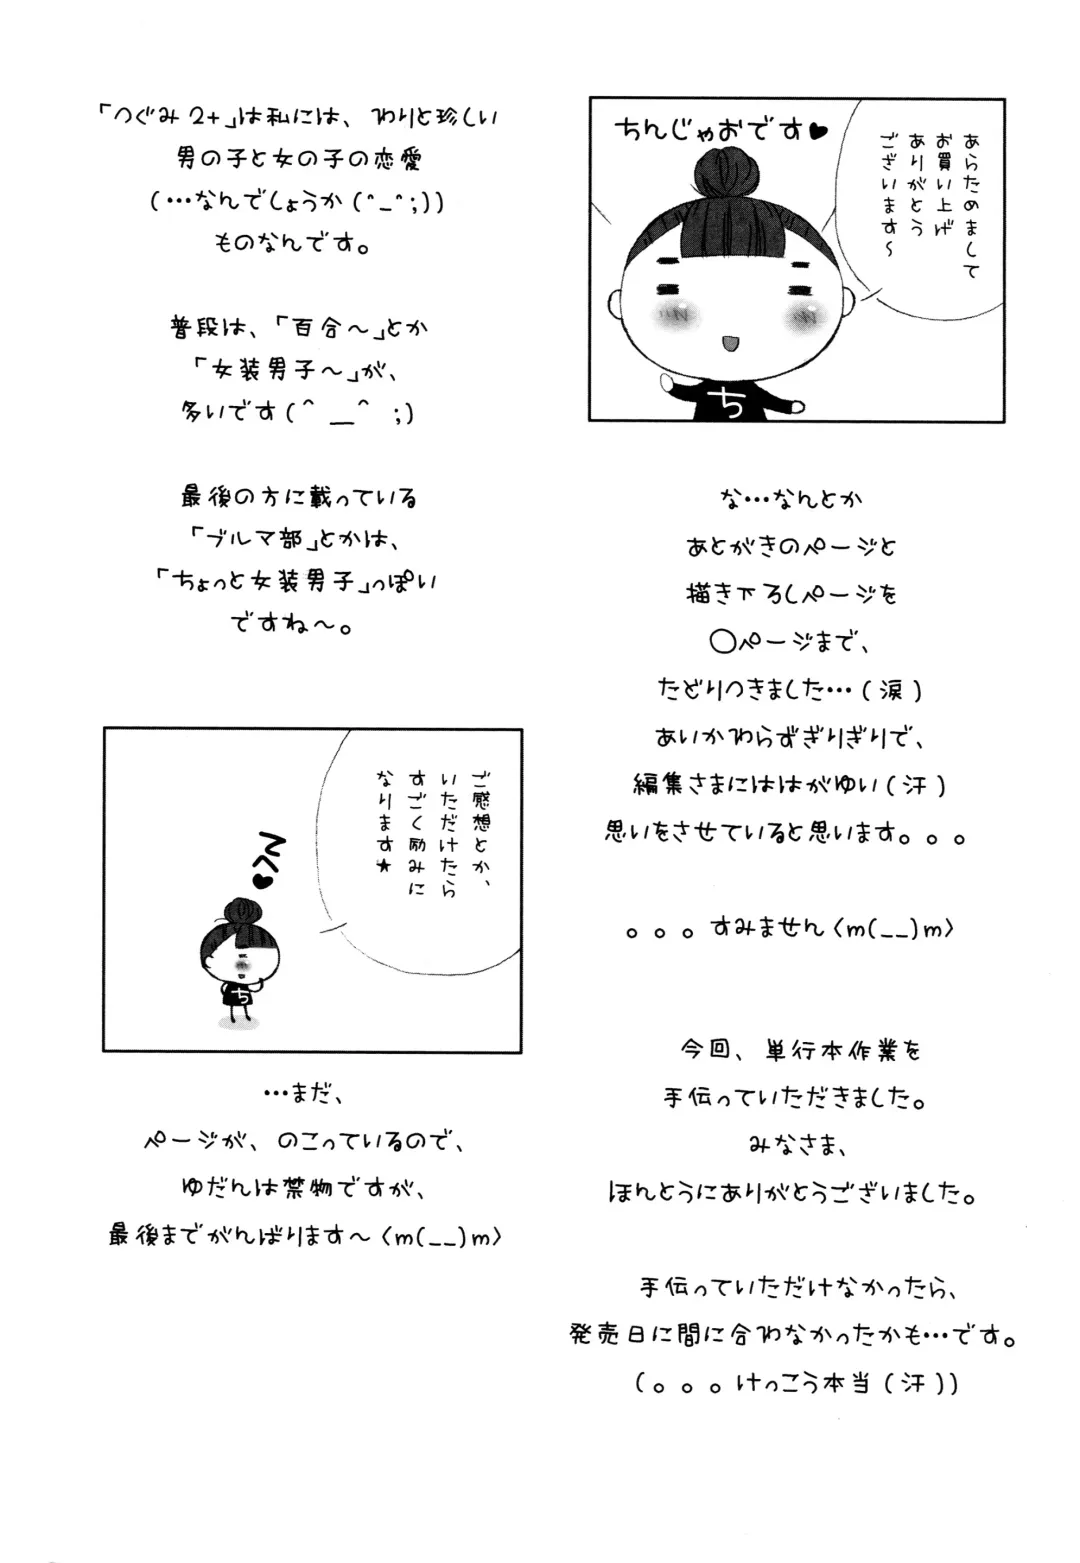 ちんじゃおです♥
あらためまして
お買い上げ
ありがとう
ございます～
な…なんとか
あとがきのページと
描き下ろしページを
〇ページまで、
たどりつきました…(涙)
あいかわらずぎりぎりで、
編集さまにははがゆい(汗)
思いをさせていると思います。。。
。。。すみません〈m(__)m〉
今回、単行本作業を
手伝っていただきました。
みなさま、
ほんとうにありがとうございました。
手伝っていただけなかったら、
発売日に間に合わなかったかも…です。
(。。。けっこう本当(汗))
「つぐみ2+」は私には、わりと珍しい
男の子と女の子の恋愛
(…なんでしょうか(^_^;))
ものなんです。
普段は、「百合～」とか
「女装男子～」が、
多いです(^__^ ;)
最後の方に載っている
「ブルマ部」とかは、
「ちょっと女装男子」っぽい
ですね～。
ご感想とか、
いただけたら
すごく励みに
なります★
…まだ、
ページが、のこっているので、
ゆだんは禁物ですが、
最後までがんばります～〈m(__)m〉
ち
ち